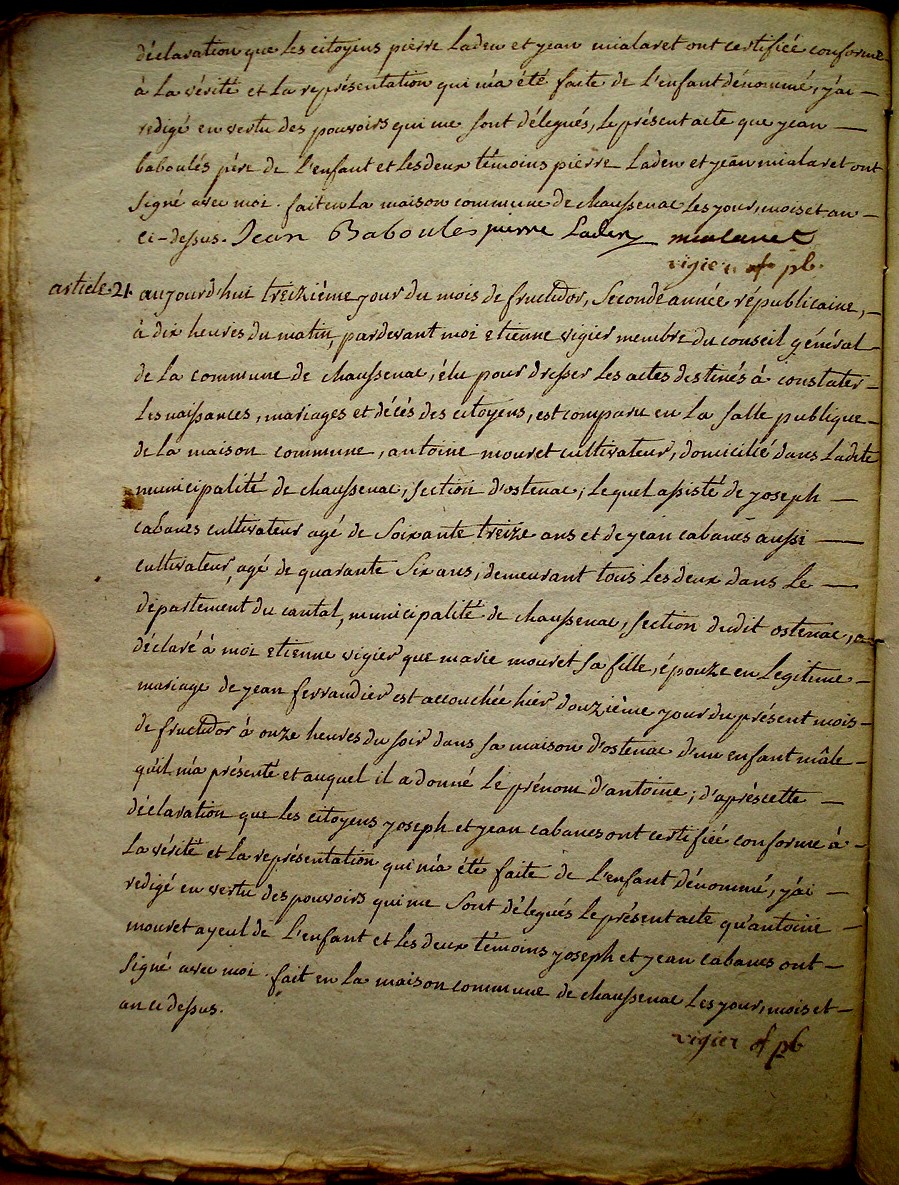 déclaration que les citoyens pierre Laden et jean mialaret ont certifiée conforme
à la vérité et la représentation qui m'a été faite de l'enfant dénommé, j'ai —
redigé en vertu des pouvoirs qui me sont délegués, le présent acte que jean —
baboulés père de l'enfant et les deux témoins pierre Laden et jean mialaret ont
signé avec moi. fait en la maison commune de chaussenac les jour, mois et an —
ci-dessus. Jean Baboulés pierre Laden mialaret
vigier of pb.
article 21. aujourd'hui treizième jour du mois de fructidor, seconde année républicaine, —
à dix heures du matin, pardevant moi etienne vigier membre du conseil général —
de la commune de chaussenac, élu pour dresser les actes destinés à constater —
les naissances, mariages et décés des citoyens, est comparu en la salle publique —
de la maison commune, antoine mouret cultivateur, domicilié dans ladite
municipalité de chaussenac, section d'ostenac, lequel assisté de joseph —
cabanes cultivateur agé de soixante treize ans et de jean cabanes aussi —
cultivateur, agé de quarante six ans, demeurant tous les deux dans le —
département du cantal, municipalité de chaussenac, section dudit ostenac, a
déclaré à moi etienne vigier que marie mouret sa fille, épouze en legitime —
mariage de jean ferrandier est accouchée hier douzième jour du présent mois —
de fructidor à onze heures du soir dans sa maison d'ostenac d'un enfant mâle —
qu'il m'a présenté et auquel il a donné le prénom d'antoine; d'après cette —
déclaration que les citoyens joseph et jean cabanes ont certifiée conforme à —
la vérité et la représentation qui m'a été faite de l'enfant dénommé, j'ai —
redigé en vertu des pouvoirs qui me sont délegués le présent acte qu'antoine —
mouret ayeul de l'enfant et les deux témoins joseph et jean cabanes ont —
signé avec moi. fait en la maison commune de chaussenac les jour, mois et —
an ci dessus.
vigier of pb